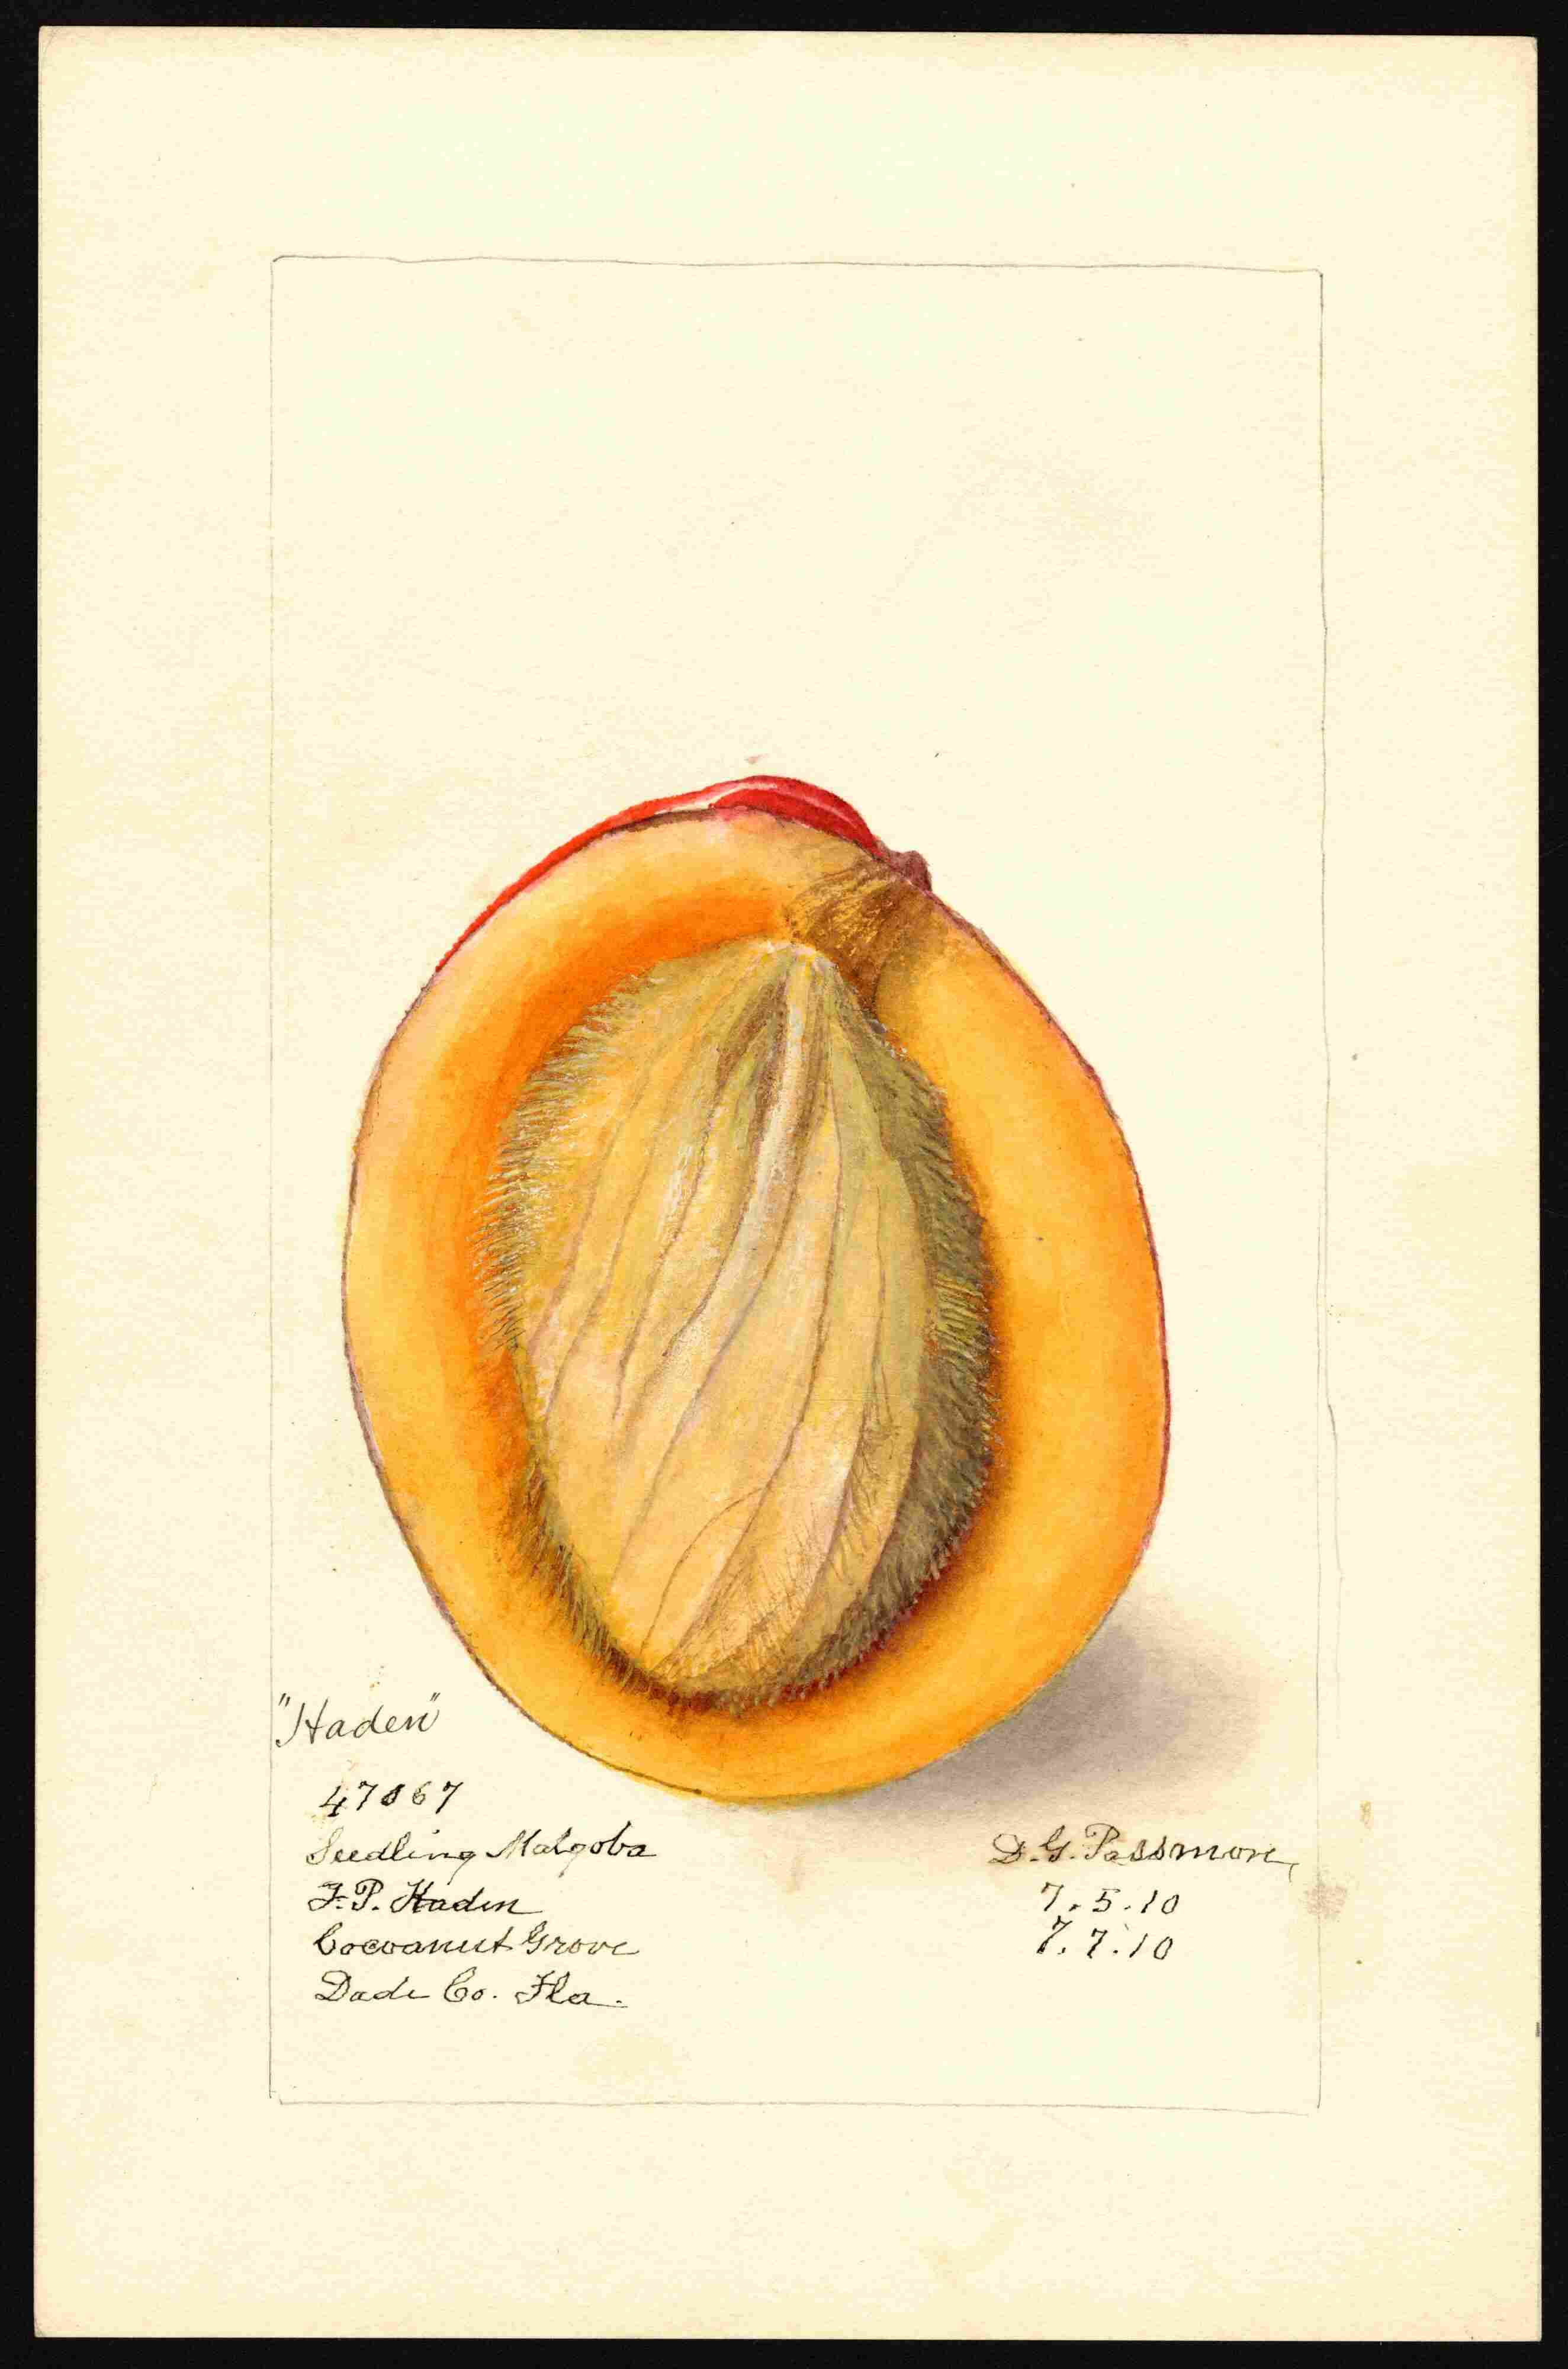 "Haden"
47867
Seedling Malgoba
F. P. Haden
Cocoanut Grove
Dade Co. Fla.
D. G. Passmore,
7.5.10
7.7.10